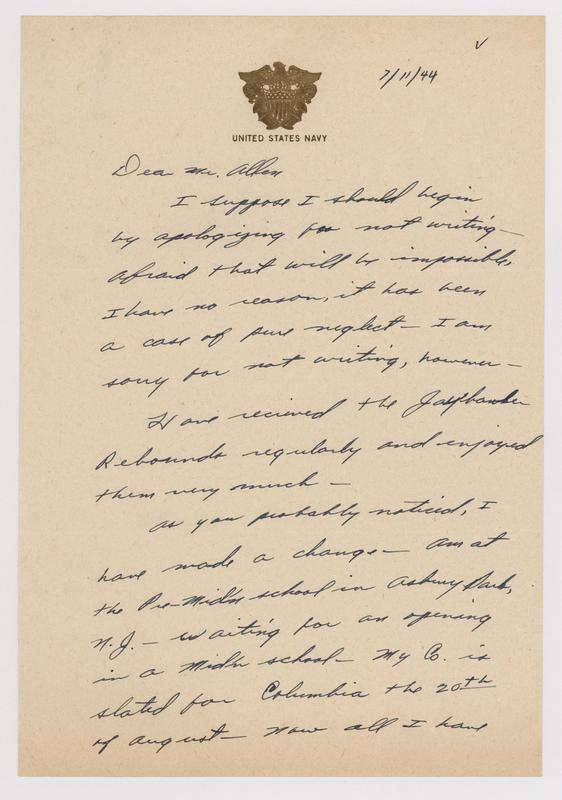 ✓
7/11/44
UNITED STATES NAVY
Dear Mr. Allen
I suppose I should begin
by apologizing for not writing—
afraid that will be impossible,
I have no reason, it has been
a case of pure neglect— I am
sorry for not writing, however—
Have recieved the Jayhawker
Rebounds regularly and enjoyed
them very much—
As you probably noticed, I
have made a change— Am at
the Pre-Mid'n school in Asbury Park,
N.J.— waiting for an opening
in a Mid'n school— My Co. is
slated for Columbia the 20th
of August— Now all I have